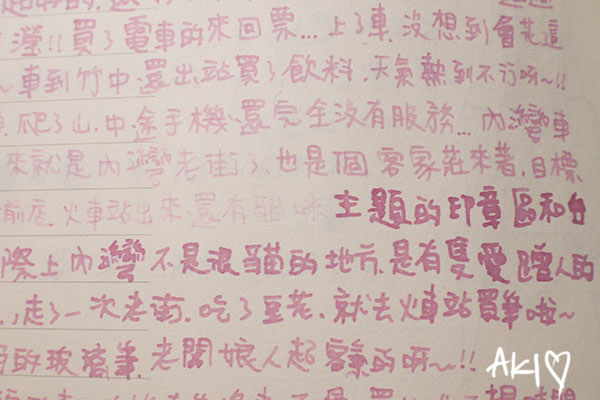 瀅!!買了電車的來回票...上了車.沒想到會先這
～車到竹中還出站買了飲料.天氣熱到不行呀～!!
爬了山.中途手機還完全沒有服務...內灣車
來就是內灣老街了.也是個客家莊來著.目標
前屋.火車站出來還有貓咪主題的印章區和台
際上內灣不是很貓的地方.是有隻愛蹭人的
,走了一次老街.吃了豆花.就去火車站買筆啦～
的玻璃筆.老闆娘人超客氣的呀～!!
AKI♡